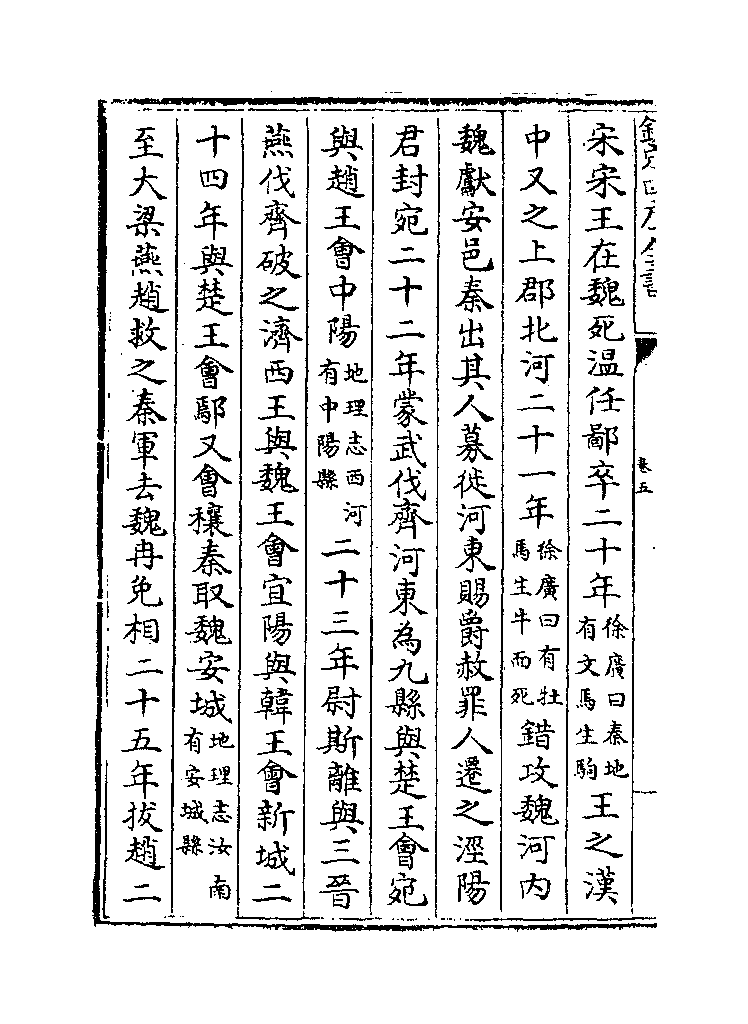 欽定四庫全書
卷五
宋宋王在魏死温任鄙卒二十年徐廣曰秦地有文馬生駒王之漢
中又之上郡北河二十一年徐廣曰有牡馬生牛而死錯攻魏河内
魏獻安邑秦出其人募徙河東賜爵赦罪人遷之涇陽
君封宛二十二年蒙武伐齊河東為九縣與楚王會宛
與趙王會中陽地理志西河有中陽縣二十三年尉斯離與三晉
燕伐齊破之濟西王與魏王會宜陽與韓王會新城二
十四年與楚王會鄢又會穰秦取魏安城地理志汝南有安城縣
至大梁燕趙救之秦軍去魏冉免相二十五年拔趙二